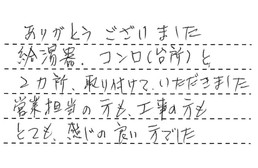 ありがとうございました
給湯器、コンロ(台所)と
2カ所、取り付けていただきました
営業担当の方も、工事の方も
とても、感じの良い方でした